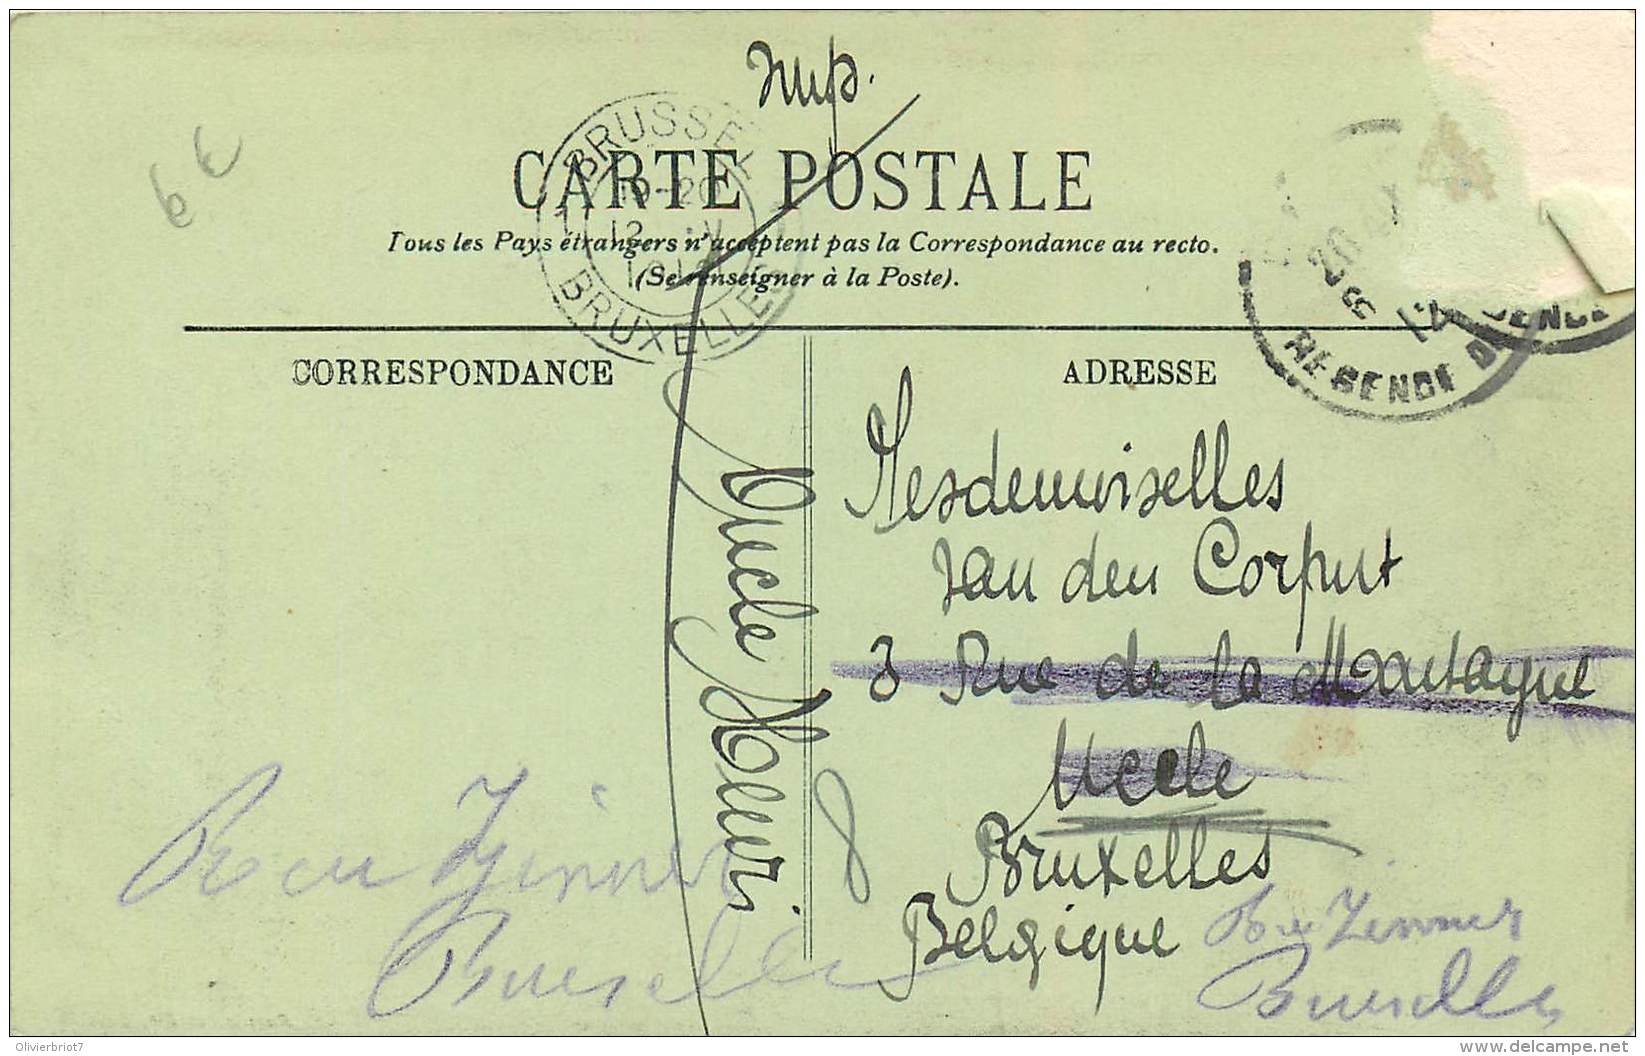 Imp.
CARTE POSTALE
Tous les Pays étrangers n'acceptent pas la Correspondance au recto.
(Se renseigner à la Poste).
BRUSSEL
12 V
1912
BRUXELLES
6 €
CORRESPONDANCE
ADRESSE
Mesdemoiselles
Van den Corput
3 Rue de la Montagne
Uccle
Bruxelles
Belgique
Oncle Henri
Rue Zinner
Bruxelles
Rue Zinner
Bruxelles
Olivierbriot7
www.delcampe.net